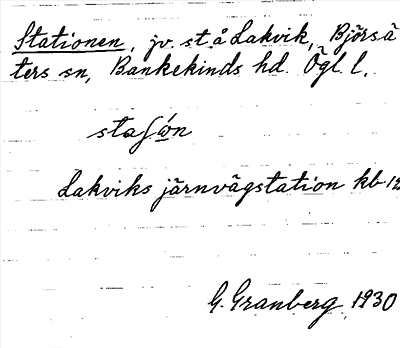 Stationen, jv. st å Lakvik, Björsä
ters sn, Bankekinds hd. Ögl. l.
staʃo̱ń
Lakviks järnvägstation kb 12
G. Granberg 1930